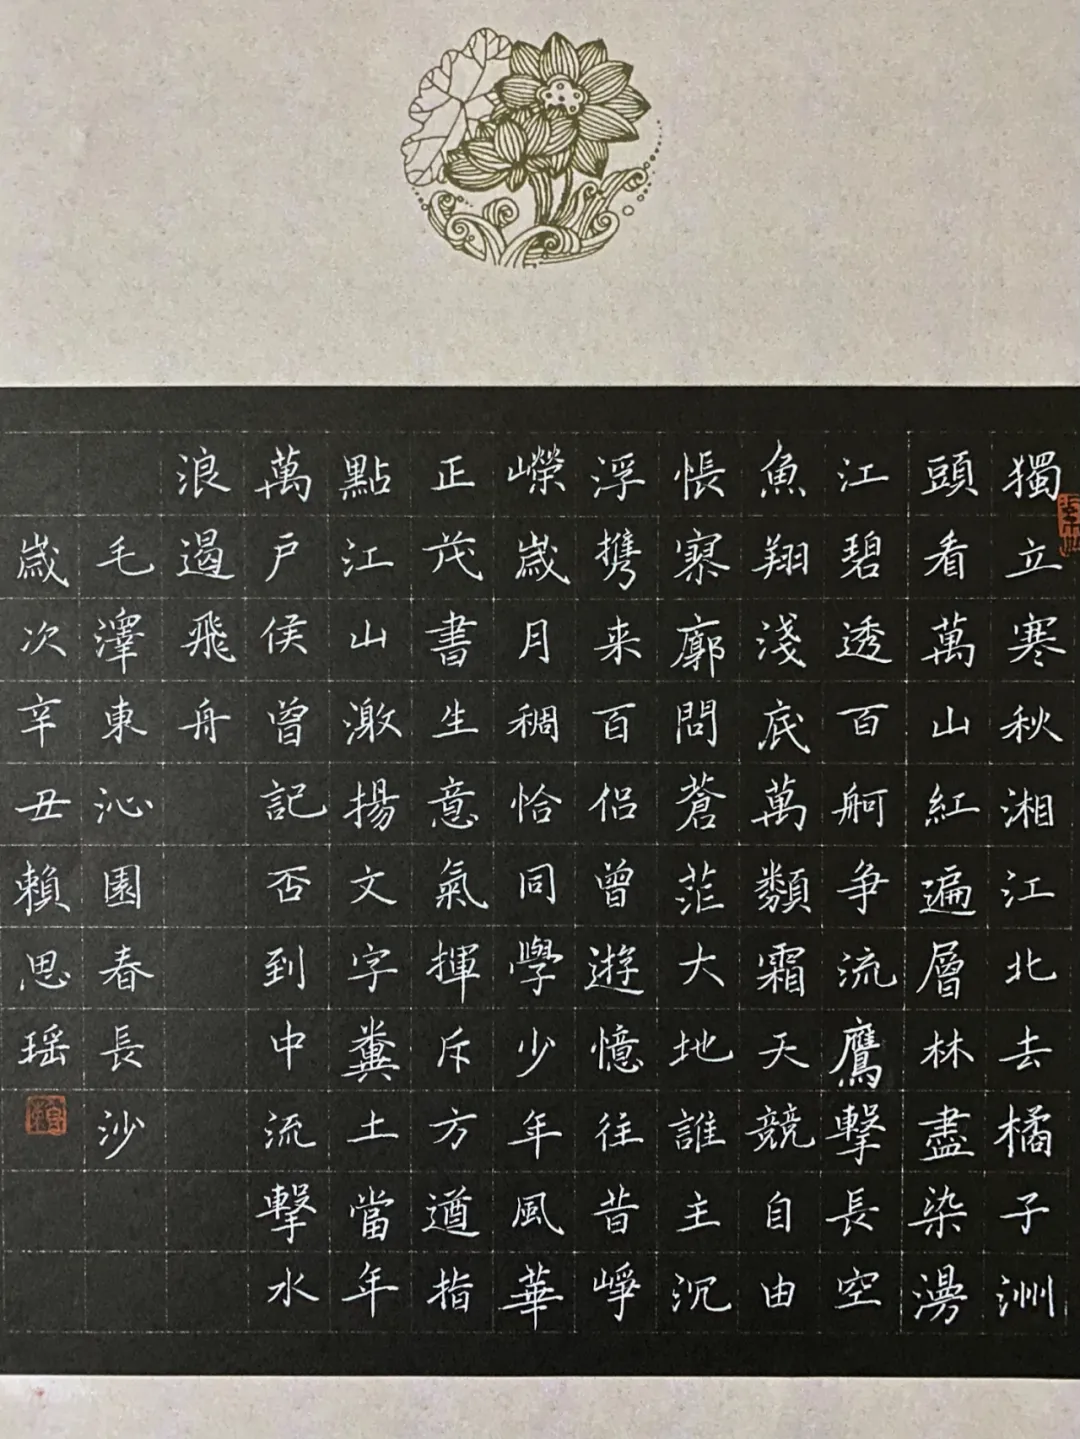 獨立寒秋湘江北去橘子洲
頭看萬山紅遍層林盡染漫
江碧透百舸争流鷹擊長空
魚翔淺底萬類霜天競自由
悵寥廓問蒼茫大地誰主沉
浮攜来百侣曾遊憶往昔崢
嶸歲月稠恰同學少年風華
正茂書生意氣揮斥方遒指
點江山激揚文字糞土當年
萬戶侯曾記否到中流擊水
浪遏飛舟
毛澤東沁園春長沙
歲次辛丑賴思瑶